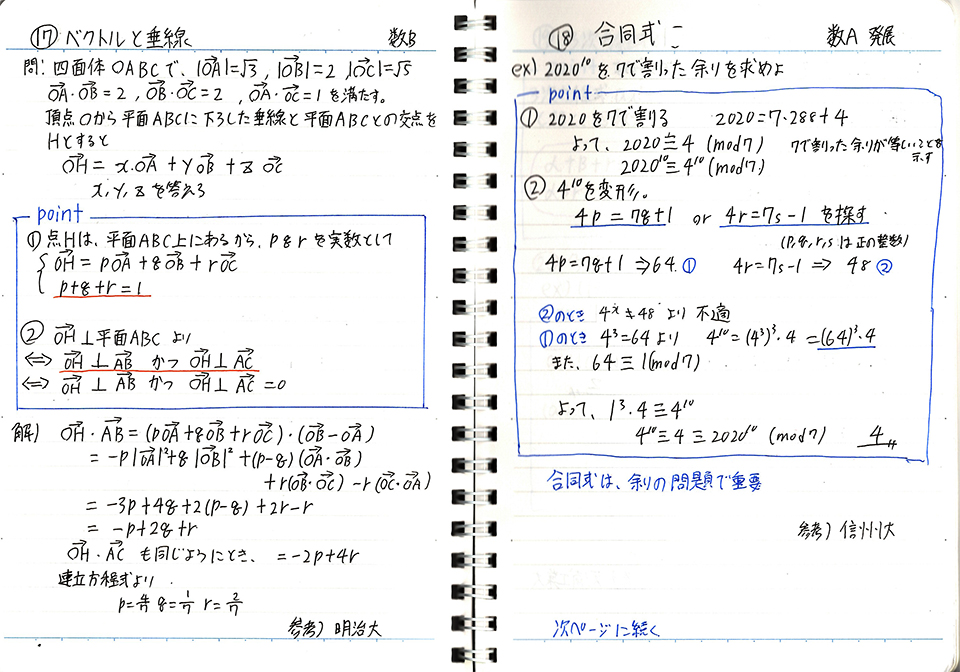 ⑰ ベクトルと垂線 数B
問: 四面体OABCで、|OA|=√3, |OB|=2 |OC|=√5
OA・OB=2, OB・OC=2, OA・OC=1を満たす。
頂点Oから平面ABCに下ろした垂線と平面ABCとの交点を
Hとすると
OH = x・OA + yOB + z OC
x, y, zを答えろ
point
①点Hは、平面ABC上にあるから、p q rを実数として
OH = pOA+qOB+rOC
p+q+r=1
② OH⊥平面ABC より
⇔ OH⊥AB かつ OH⊥AC
⇔ OH⊥AB かつ OH⊥AC =0
解) OH・AB=(pOA+qOB+rOC)・(OB-OA)
= -p|OA|²+q|OB|²+(p-q)(OA・OB)
+r(OB・OC)-r(OC・OA)
= -3p+4q+2(p-q)+2r-r
= -p+2q+r
OH・ACも同じようにとき、 =-2p+4r
連立方程式より
p=4/7 q=1/7 r=2/7
参考) 明治大
⑱ 合同式 数A 発展
ex) 2020¹⁰を7で割った余りを求めよ
point
① 2020を7で割る 2020=7・288+4
よって、2020≡4 (mod7) 7で割った余りが等しいことを
示す
2020¹⁰≡4¹⁰(mod7)
② 4¹⁰を変形。
4p = 7q+1 or 4r=7s-1 を探す
(p,q,r,sは正の整数)
4p=7q+1 ⇒64.① 4r=7s-1 ⇒ 48 ②
②のとき 4ˣ≠48 より 不適
①のとき 4³=64より 4¹⁰=(4³)³・4 =(64)³・4
また、64≡1(mod7)
よって、1³・4≡4¹⁰
4¹⁰≡4≡2020¹⁰ (mod7) 4
合同式は、余りの問題で重要
参考) 信州大
次ページに続く